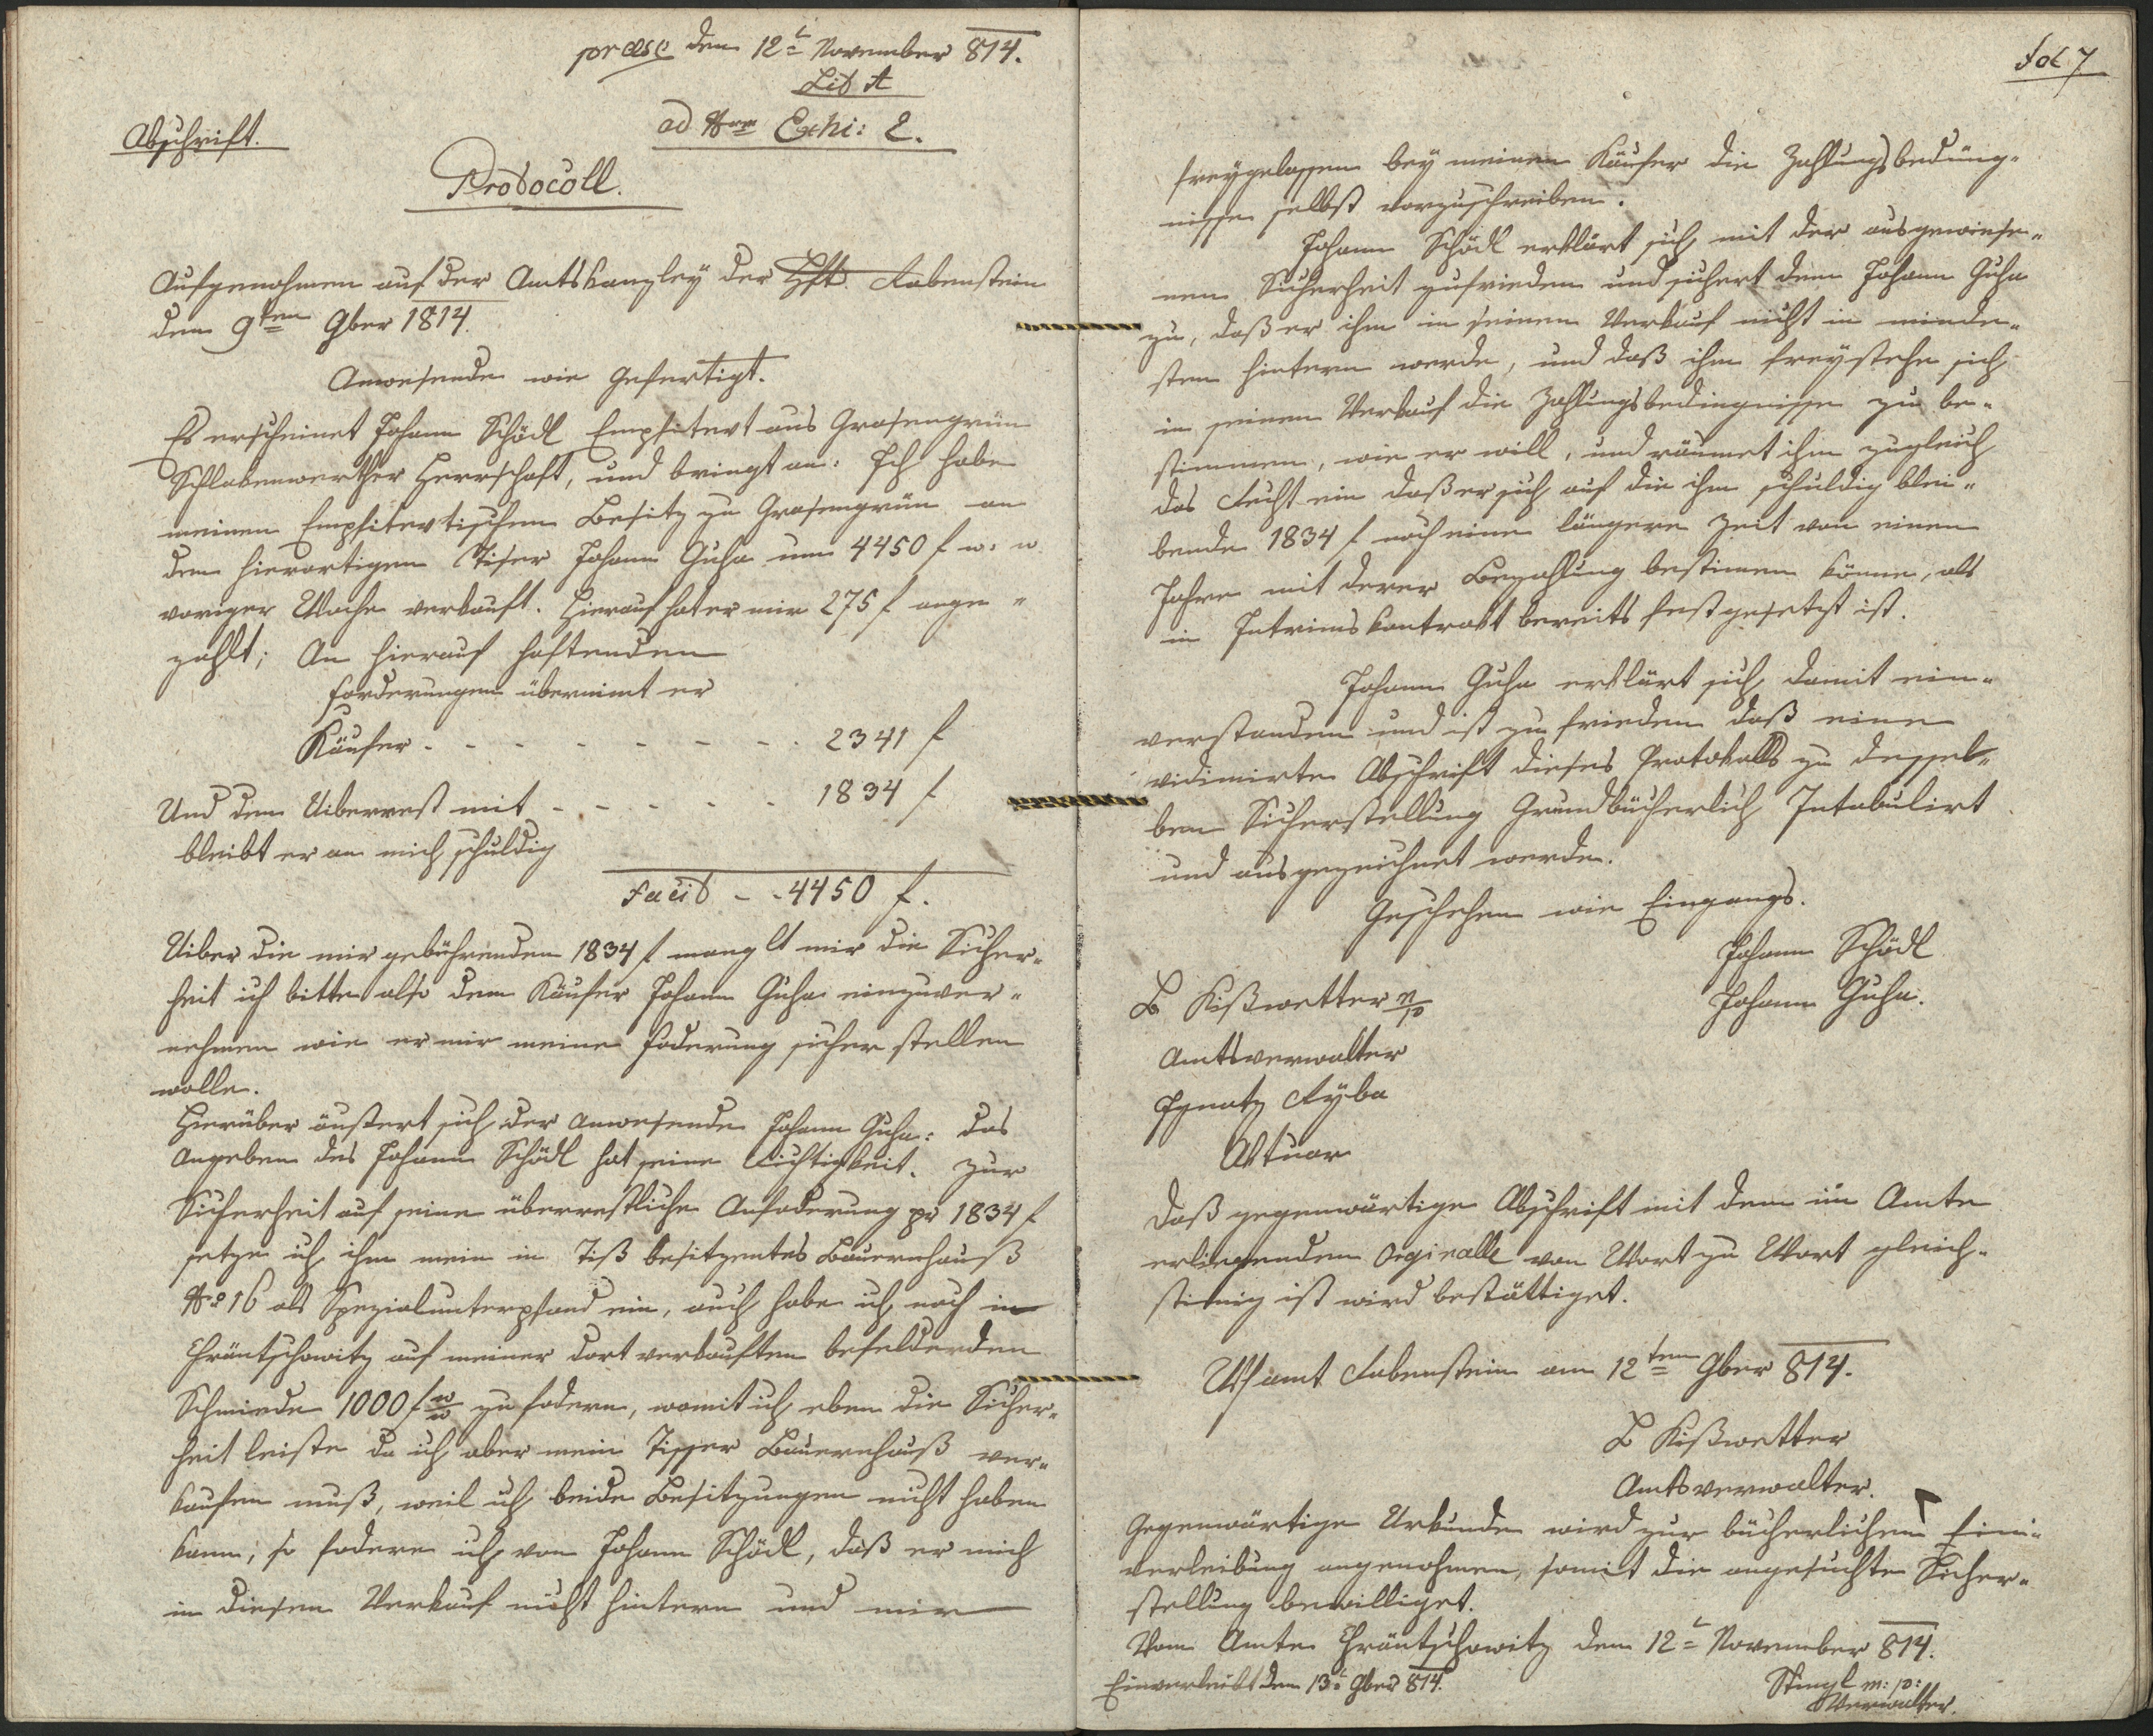 præse den 12t November 814.
Lit A
ad Nrm Exhi: 2.
Abschrift.
Protocoll.
Aufgenohmen auf der Amtskanzley der Hft. Rabenstein
den 9ten 9ber 1814.
Anwesende wie gefertigt.
Es erscheinet Johann Schödl Emphitevt aus Grasengrün
Schlakenwerther Herrschaft, und bringt an: Ich habe
meinen Emphitevtischen Besitz zu Grasengrün an
den hierortigen Tiser Johann Guha um 4450 f w: w
voriger Woche verkauft. Hierauf hat er mir 275 f ange-
zahlt; An hierauf haftenden
Forderungen übernimt er
Käufer - - - - - - - - 2341 f
Und den Uiberrest mit - - - - - - 1834 f
bleibt er an mich schuldig
Facit - - 4450 f.
Uiber die mir gebührenden 1834 f manglt mir die Sicher-
heit ich bitte also den Käufer Johann Guha einzuver-
nehmen wie er mir meine Foderung sicher stellen
wolle.
Hierüber äußert sich der anwesende Johann Guha: das
Angeben des Johann Schödl hat seine Richtigkeit. Zur
Sicherheit auf seine überrestliche Anfoderung pr 1834 f
setze ich ihm mein in Tiß besitzentes Bauernhauß
No 16 als Spezialunterpfand ein, auch habe ich noch in
Chräntschowitz auf meiner dort verkauften befelderden
Schmiede 1000 f w/w zu fodern, womit ich eben die Sicher-
heit leiste da ich aber mein Tisser Bauernhauß ver-
kaufen muß, weil ich beide Besitzungen nicht haben
kann, so fodere ich von Johann Schödl, daß er mich
in diesen Verkauf nicht hintern und mir
Fol 7
freygelassen bey meinen Käufer die Zahlungsbedüng-
nisse selbst vorzuschreiben.
Johann Schödl erklärt sich mit der ausgewiese-
nen Sicherheit zufrieden und sichert dem Johann Guha
zu, daß er ihm in seinen Verkauf nicht in minde-
sten hintern werde, und daß ihm freystehe sich
in seinen Verkauf die Zahlungsbedingnisse zu be-
stimmen, wie er will, und räumet ihm zugleich
das Recht ein daß er sich auf die ihm schuldig blei-
bende 1834 f noch eine längere Zeit von einen
Jahre mit derer Bezahlung bestimen könne, als
in Intrimskontrakt bereits festgesetzt ist.
Johann Guha erklärt sich damit ein-
verstanden und ist zu frieden daß eine
vidimirte Abschrift dieses Protokolls zu dessel-
ben Sicherstellung Grundbücherlich Intabulirt
und ausgezeichnet werde.
Geschehen wie Eingangs.
Johann Schödl
Johann Guha.
L Kißwetter m/p
Amtsverwalter
Ignatz Ryba
Aktuar
Daß gegenwärtige Abschrift mit dem im Amte
erliegenden Originalle von Wort zu Wort gleich-
stimig ist wird bestättiget.
Wsamt Rabenstein am 12ten 9ber 814.
L Kißwetter
Amtsverwalter.
Gegenwärtige Urkunde wird zur bücherlichen Ein-
verleibung angenohmen, somit die angesuchte Sicher-
stellung bewilliget.
Vom Amte Chräntschowitz den 12t November 814.
Einverleibt den 13t 9ber 814.
Stingl m: p:
Verwalter.